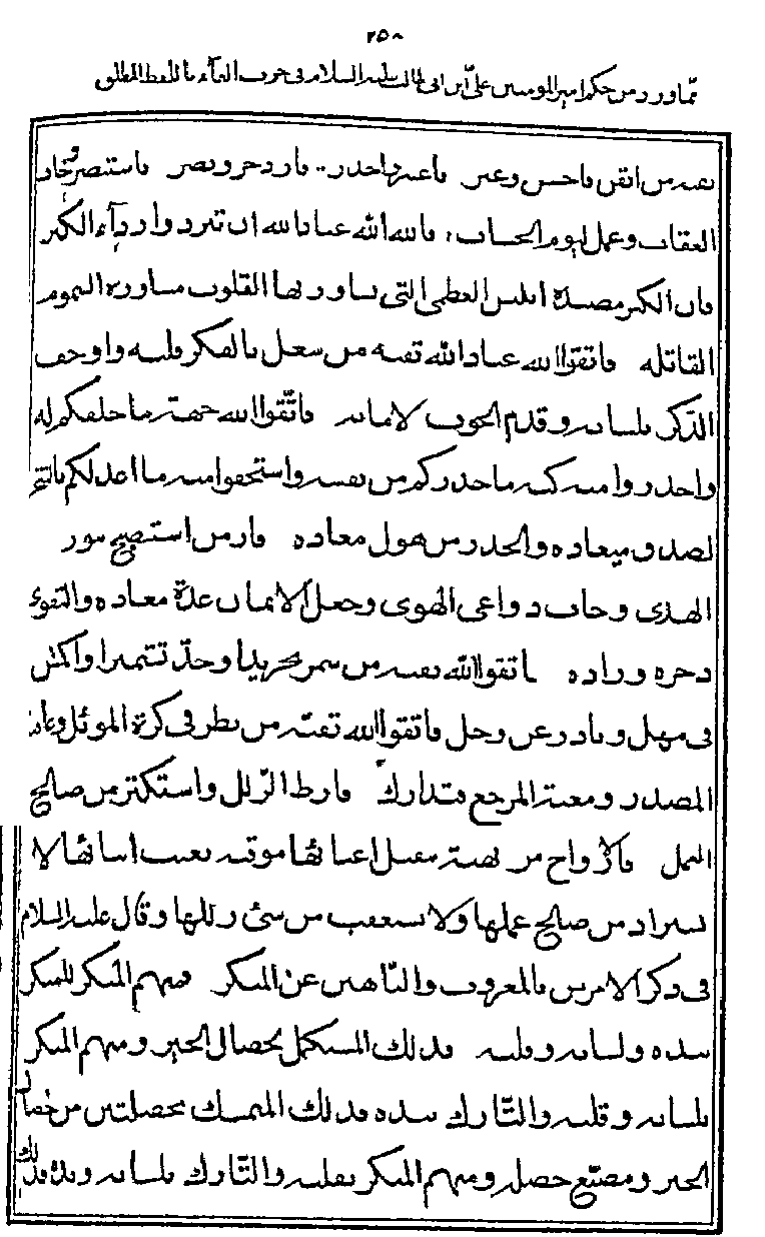 ٢٥٨
مما ورد من حكم امير المومنين علي ابن ابي طالب عليه السلام في حرف الفاء باللفظ المطلق
تقيه من ايقن فاحسن وعبر فاعتبر وحذر فازدجر وبصر فاستبصر وخاف
العقاب وعمل ليوم الحساب فالله الله عباد الله ان تتردوا رداء الكبر
فان الكبر مصيدة ابليس العظمى التي يساور بها القلوب مساورة السموم
القاتله فاتقوا الله عباد الله تقيه من شغل بالفكر قلبه واوجف
الذكر بلسانه وقدم الخوف لامانه فاتقوا الله جهة ما خلقكم له
واحذروا منه كنه ما حذركم من نفسه واستحقوا منه ما اعد لكم بالتنجز
لصدق ميعاده والحذر من هول معاده فاز من استصبح بنور
الهدى وخالف دواعي الهوى وجعل الايمان عدة معاده والتقوى
ذخره وزاده فاتقوا الله تقيه من شمر تجريدا وجد تشميرا واكمش
في مهل وبادر عن وجل فاتقوا الله تقيه من نظر في كرة الموئل وعاقبة
المصدر ومغبة المرجع فتدارك فارط الزلل واستكثر من صالح
العمل فالارواح مرتهنة بثقل اعبائها موقنه بغيب انبائها لا
تستزاد من صالح عملها ولا تستعتب من سئ زللها وقال عليه السلام
في ذكر الامرين بالمعروف والناهين عن المنكر فمنهم المنكر للمنكر
بيده ولسانه وقلبه فذلك المستكمل لخصال الخير ومنهم المنكر
بلسانه وقلبه والتارك بيده فذلك المتمسك بخصلتين من خصال
الخير ومضيع خصله ومنهم المنكر بقلبه والتارك بلسانه ويده فذلك